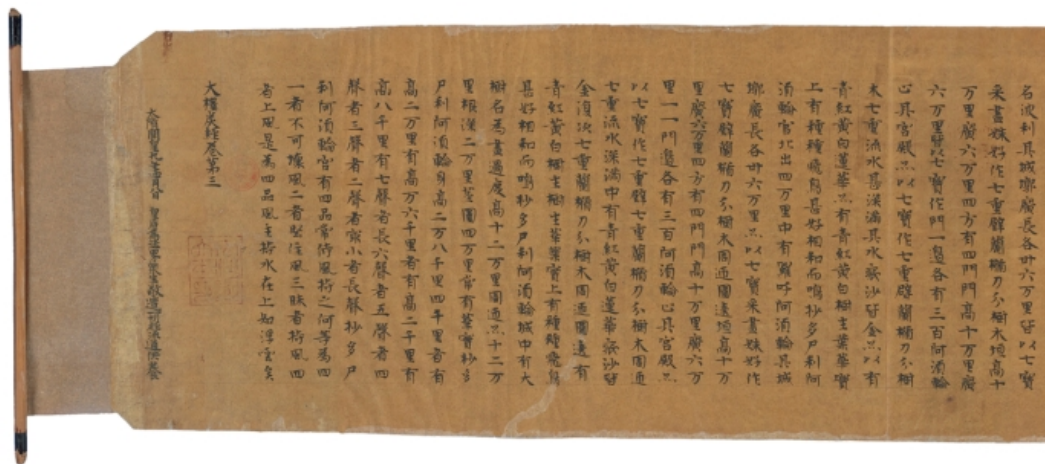 名波利具城塘廣長各卅六万里皆以七寶
采畫姝好作七重壁蘭楯刀分樹木垣高十
万里廣六万里四方有四門門高十万里廣
六万里皆以七寶作門一邊各有三百阿須輪
心具宮殿亦以七寶作七重壁蘭楯刀分樹
木七重流水甚深滿其水底沙皆金亦以有
青紅黃白蓮華亦有青紅黃白樹生葉華實
上有種種飛鳥甚好相和而鳴抄多尸利阿
須輪宮北出四万里中有殟呼阿須輪具城
塘廣長各卅六万里亦以七寶采畫姝好作
七寶壁蘭楯刀分樹木周迊圍遶垣高十万
里廣六万里四方有四門門高十万里廣六万
里一一門邊各有三百阿須輪心具宮殿亦
以七寶作七重壁七重蘭楯刀分樹木周迊
七重流水深滿中有青紅黃白蓮華底沙皆
金復次七重蘭楯刀分樹木周迊圍遶有
青紅黃白樹生樹生華葉實上有種種飛鳥
甚好相和而鳴抄多尸利阿須輪城中有大
樹名為畫過度高十二万里圍迊亦十二万
里根深二万里莖圍四万里常有華實抄多
尸利阿須輪身高二万八千里四千里者有
高二万里有高万六千里者有高二千里有
高八千里有七聲者長六聲者五聲者四
聲者三聲者二聲者最小者長聲抄多尸
利阿須輪宮有四品常侍風持之何等為四
一者不可壞風二者堅住風三昧者持風四
者上風是為四品風主持水在上如浮雲矣
大樓炭經卷第三
大隋開皇九年四月八日 皇后為法界衆生敬造一切經流通供養